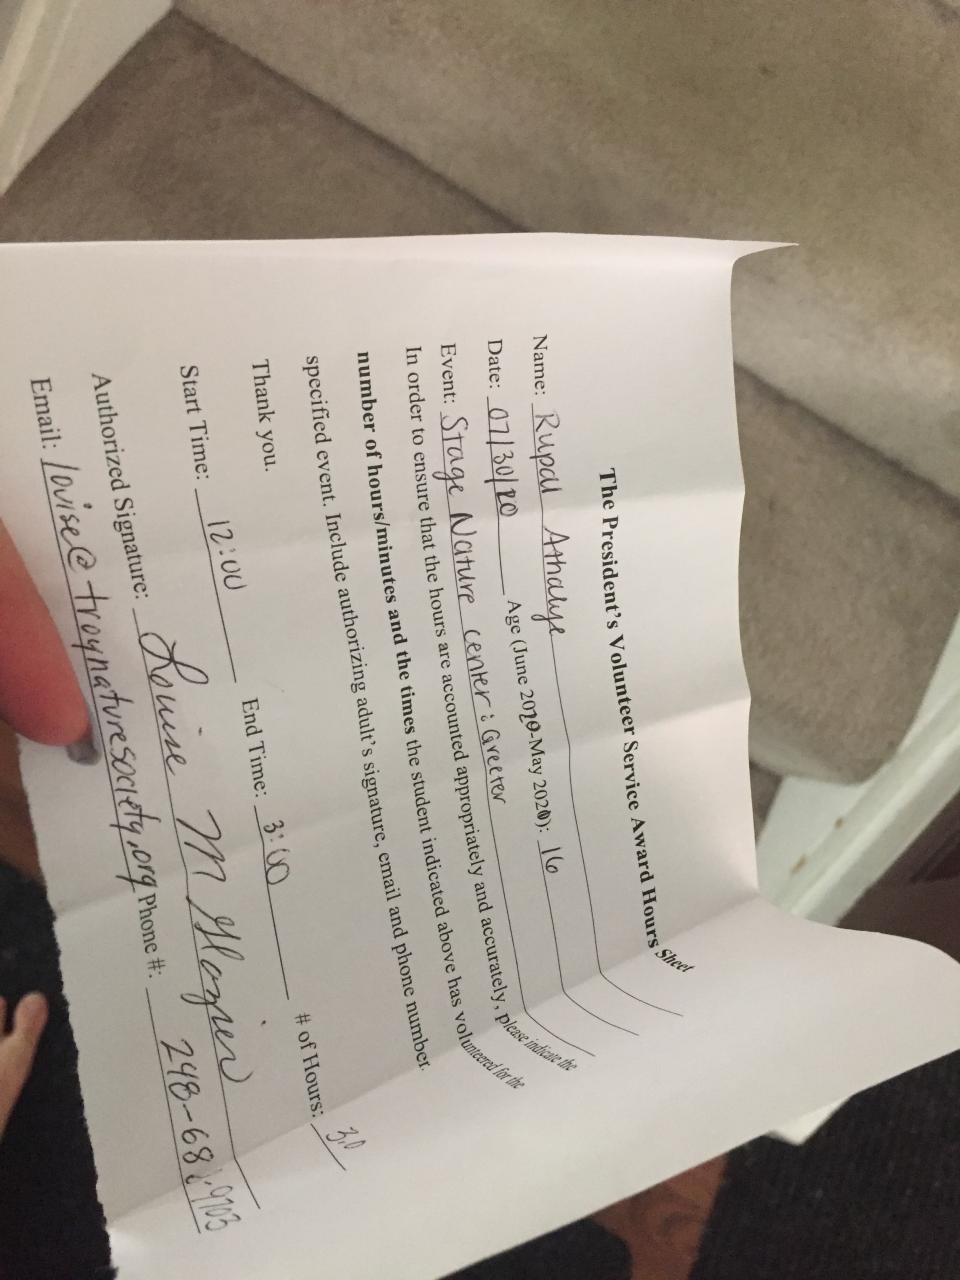 The President's Volunteer Service Award Hours Sheet
Name: Rupal Athalye
Date: 07/30/20 Age (June 2020-May 2020): 16
Event: Stage Nature center: Greeter
In order to ensure that the hours are accounted appropriately and accurately, please indicate the
number of hours/minutes and the times the student indicated above has volunteered for the
specified event. Include authorizing adult's signature, email and phone number.
Thank you.
Start Time: 12:00 End Time: 3:00 # of Hours: 3.0
Authorized Signature: Louise M
Email: louise@troynaturesociety.org Phone #: 248-688-9703